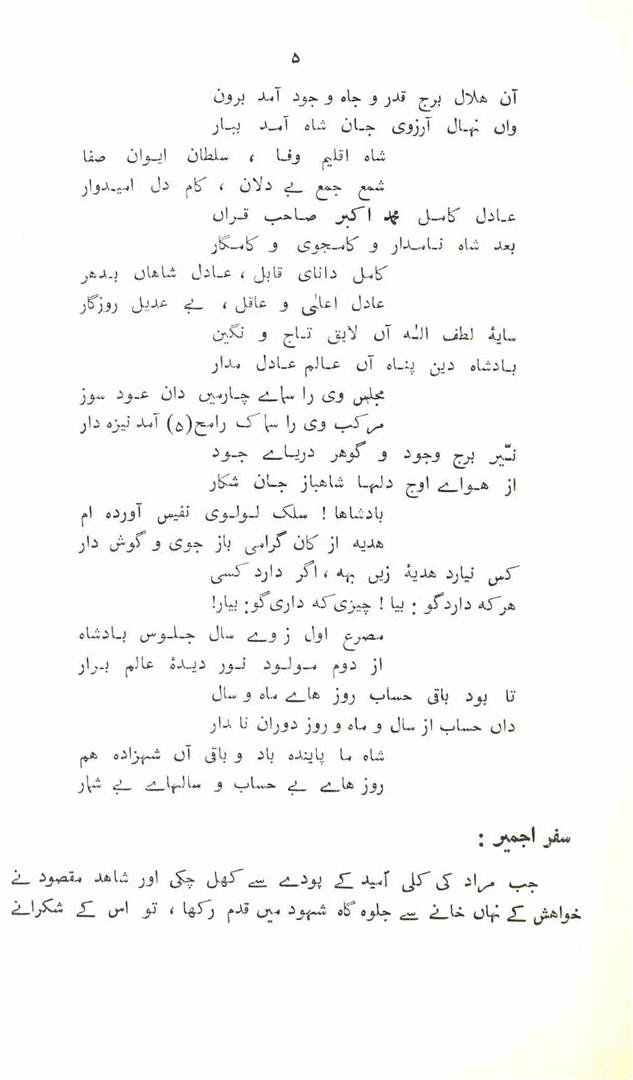 ۵
آن هلال برج قدر و جاه و جود آمد برون
وان نہال آرزوی جان شاہ آمد ببار
شاہ اقلیم وفا ، سلطان ایوان صفا
شمع جمع بے دلان ، کام دل امیدوار
عادل کامل محمد اکبر صاحب قراں
بعد شاہ نامدار و کامجوی و کامگار
کامل دانای قابل ، عادل شاهاں بدهر
عادل اعلیٰ و عاقل ، بے عدیل روزگار
سایۂ لطف الٰہ آں لایق تاج و نگین
بادشاہ دین پناہ آں عالم عادل مدار
مجلس وی را سماے چارمیں دان عود سوز
مرکب وی را سماک رامح(۵) آمد نیزہ دار
نیّر برج وجود و گوهر دریاے جود
از هواے اوج دلہا شاهباز جان شکار
بادشاها ! سلک لولوی نفیس آوردہ ام
هدیہ از کان گرامی باز جوی و گوش دار
کس نیارد هدیۂ زیں بہہ ، اگر دارد کسی
هر کہ دارد گو : بیا ! چیزی کہ داری گو : بیار!
مصرع اول ز وے سال جلوس بادشاہ
از دوم مولود نور دیدۂ عالم برار
تا بود باقی حساب روز هاے ماہ و سال
داں حساب از سال و ماہ و روز دوران نا دار
شاہ ما پایندہ باد و باقی آں شہزادہ هم
روز هاے بے حساب و سالہاے بے شمار
سفر اجمیر :
جب مراد کی کلی اُمید کے پودے سے کھل چکی اور شاهد مقصود نے
خواهش کے نہاں خانے سے جلوہ گاہ شہود میں قدم رکھا ، تو اس کے شکرانے